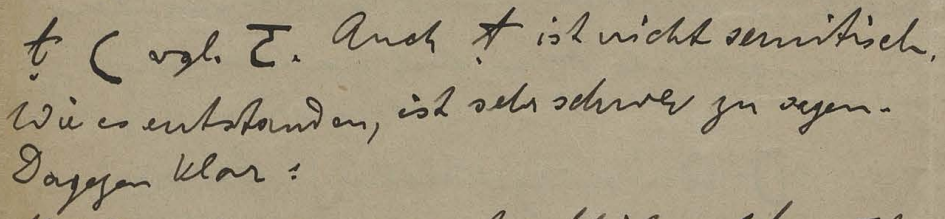 ṭ ( vgl. ट. Auch ṭ ist nicht semitisch.
Wie es entstanden, ist sehr schwer zu sagen.
Dagegen klar: